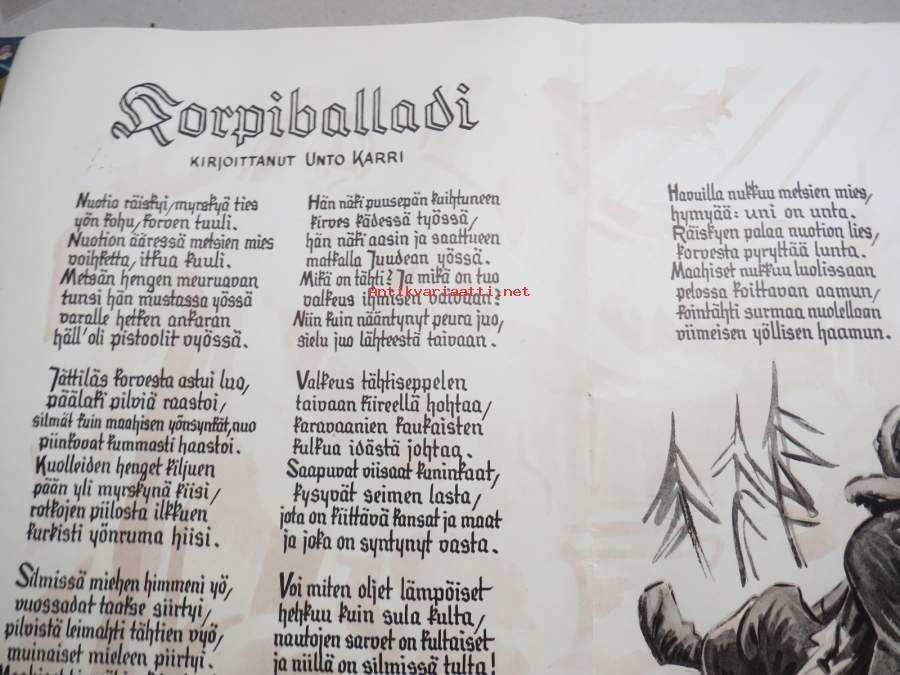 Korpiballadi
KIRJOITTANUT UNTO KARRI
Nuotio räiskyi, myrskyä ties
yön kohu, korven tuuli.
Nuotion ääressä metsien mies
voihketta, itkua kuuli.
Metsän hengen meuruavan
tunsi hän mustassa yössä
varalle hetken ankaran
häll' oli pistoolit vyössä.
Jättiläs korvesta astui luo,
päälaki pilviä raastoi,
silmät kuin maahisen yönsynkät, nuo
piinkovat kummasti haastoi.
Kuolleiden henget kiljuen
pään yli myrskynä kiisi,
rotkojen piilosta ilkkuen
kurkisti yönruma hiisi.
Silmissä miehen himmeni yö,
vuossadat taakse siirtyi,
pilvistä leimahti tähtien vyö,
muinaiset mieleen piirtyi.
Hän näki puusepän kuihtuneen
kirves kädessä työssä,
hän näki aasin ja saattueen
matkalla Juudean yössä.
Mikä on tähti? Ja mikä on tuo
valkeus ihmisen vaivaan?
Niin kuin nääntynyt peura juo,
sielu juo lähteestä taivaan.
Valkeus tähtiseppelen
taivaan kiireellä hohtaa,
karavaanien kaukaisten
kulkua idästä johtaa.
Saapuvat viisaat kuninkaat,
kysyvät seimen lasta,
jota on kiittävä kansat ja maat
ja joka on syntynyt vasta.
Voi miten oljet lämpöiset
hehkuu kuin sula kulta,
nautojen sarvet on kultaiset
ja niillä on silmissä tulta!
Havuilla nukkuu metsien mies,
hymyää: uni on unta.
Räiskyen palaa nuotion lies,
korvesta pyryltää lunta.
Maahiset nukkuu luolissaan
pelossa koittavan aamun,
kointähti surmaa nuolellaan
viimeisen yöllisen haamun.
Antikvariaatti.net